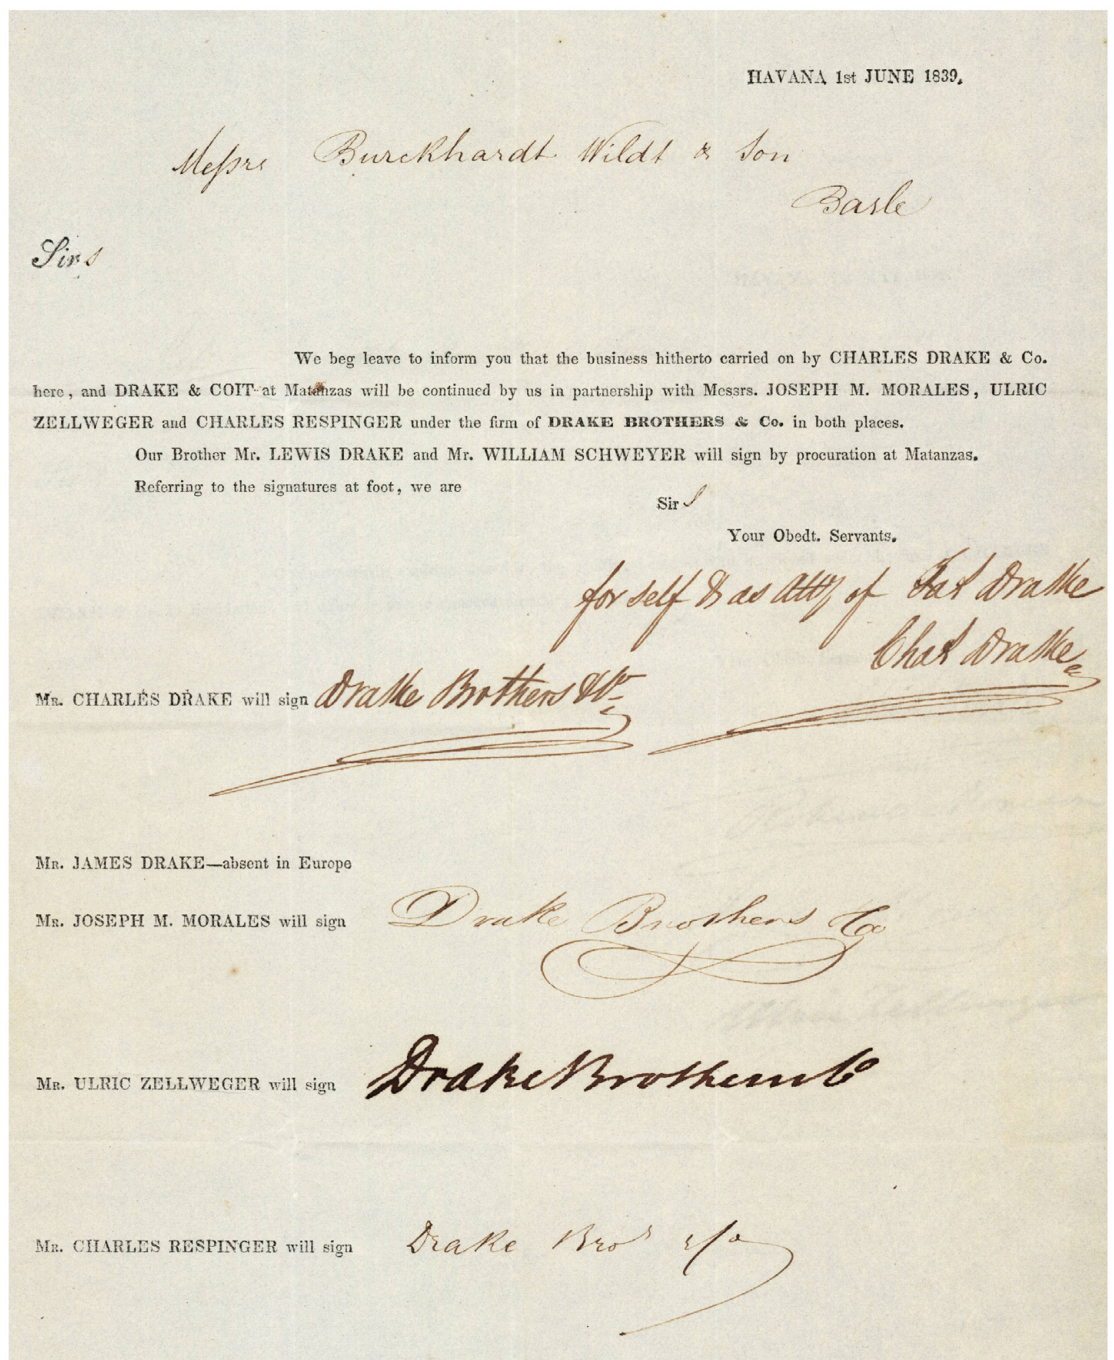 HAVANA 1st JUNE 1839.
Messrs Burckhardt Wildt & Son
Basle
Sirs
We beg leave to inform you that the business hitherto carried on by CHARLES DRAKE & Co.
here, and DRAKE & COIT at Matanzas will be continued by us in partnership with Messrs. JOSEPH M. MORALES, ULRIC
ZELLWEGER and CHARLES RESPINGER under the firm of DRAKE BROTHERS & Co. in both places.
Our Brother Mr. LEWIS DRAKE and Mr. WILLIAM SCHWEYER will sign by procuration at Matanzas.
Referring to the signatures at foot, we are
Sirs
Your Obedt. Servants.
for self & as atty of Jas Drake
Chas Drake
Mr. CHARLES DRAKE will sign Drake Brothers & Co
Mr. JAMES DRAKE—absent in Europe
Mr. JOSEPH M. MORALES will sign Drake Brothers & Co
Mr. ULRIC ZELLWEGER will sign Drake Brothers Co
Mr. CHARLES RESPINGER will sign Drake Bros & Co